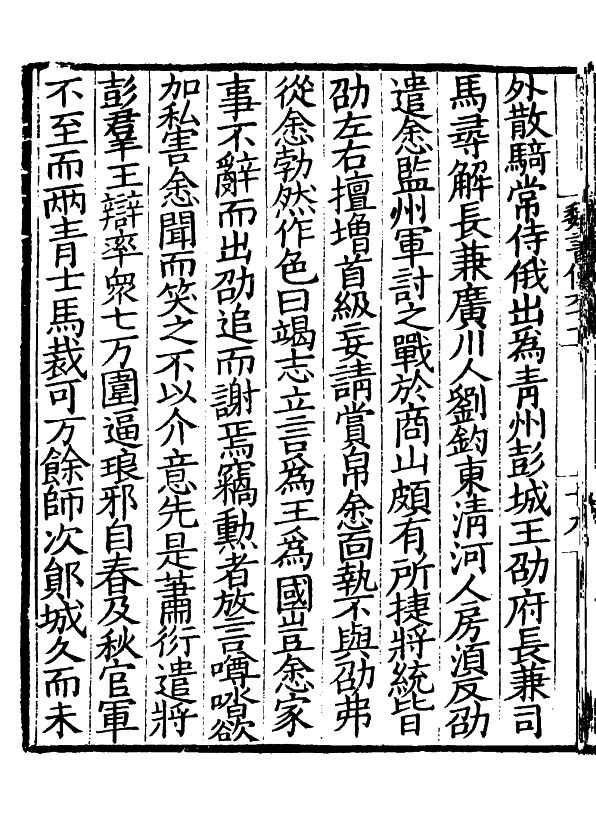 外散騎常侍俄出爲青州彭城王劭府長兼司
馬尋解長兼廣川人劉鈞東淸河人房湏反劭
遣悆監州軍討之戰於商山頗有所捷將統皆
劭左右擅增首級妄請賞帛悆面執不與劭弗
從悆勃然作色曰竭志立言爲王爲國豈悆家
事不辭而出劭追而謝焉竊勲者放言噂欲
加私害悆聞而笑之不以介意先是蕭衍遣將
彭羣王辯率衆七万圍逼琅邪自春及秋官軍
不至而兩青士馬裁可万餘師次鄖城久而未